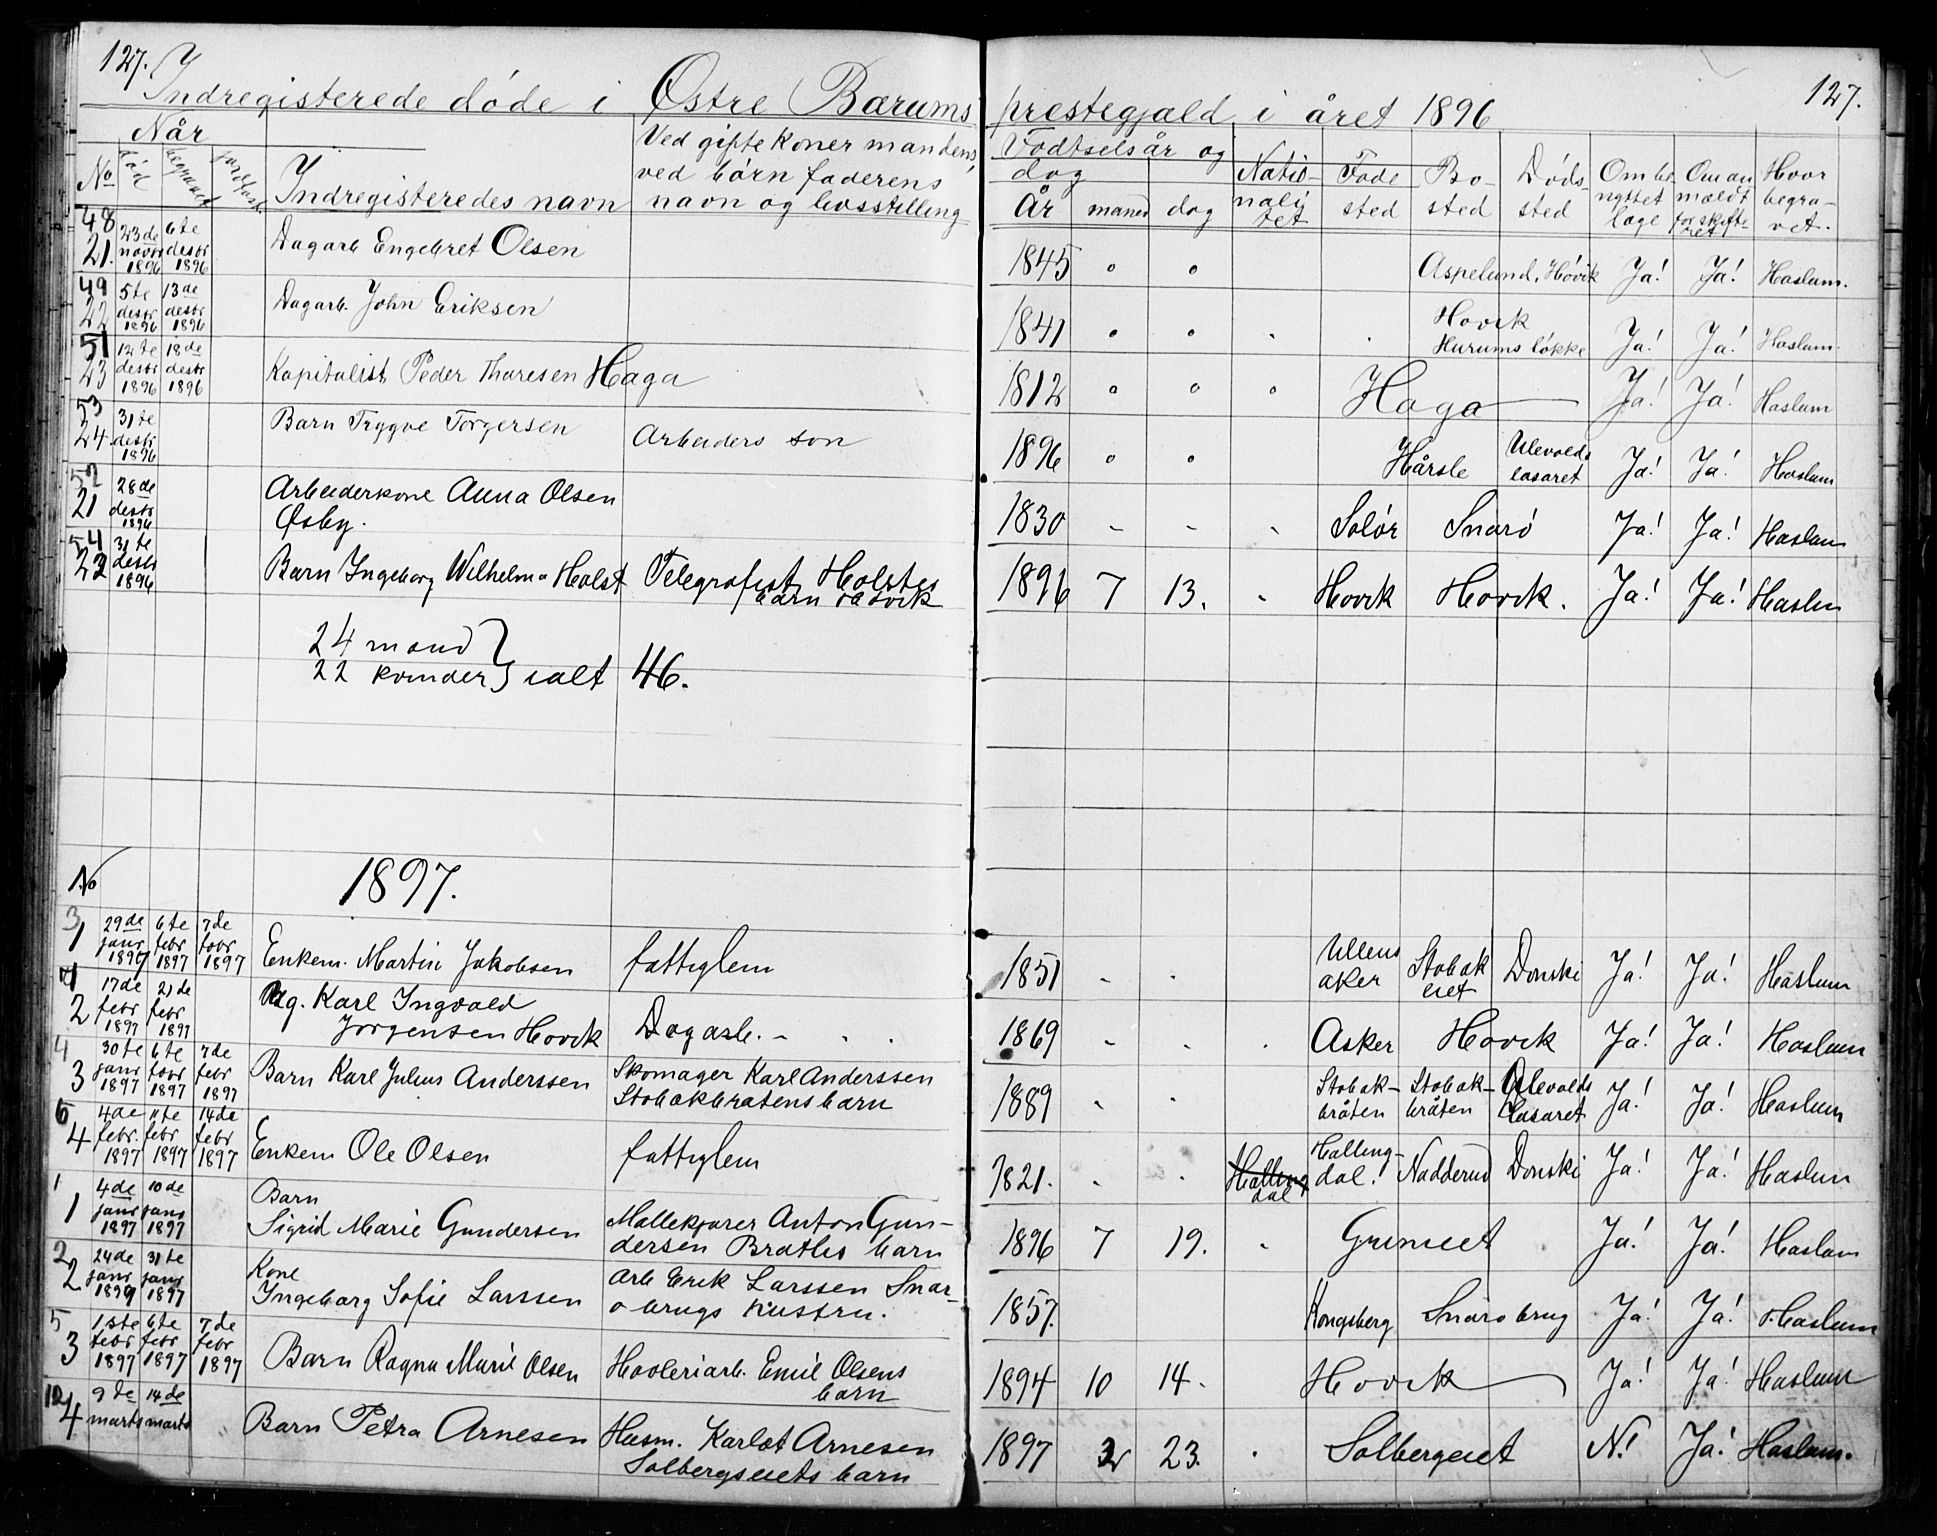 127. 127.
Indregisterede døde i Østre Bærums prestegjæld i året 1896
Når
No død begravet jordfæst
Indregisteredes navn
Ved gifte koner mandens,
ved børn faderens
navn og livsstilling
Fødtselsår og
dag
År maned dag
Natio-
nali
tet
Føde
sted
Bo-
sted
Døds-
sted
Om be
nyttet
læge
Om an
mældt
for skifte-
ret
Hvor
begra-
vet.
48 21. 23de novbr 1896 6te desbr 1896 Dagarb Engebret Olsen 1845 o o Aspelund, Høvik Ja! Ja! Haslum.
49 22 5te desbr 1896 13de desbr 1896 Dagarb. John Eriksen 1841 o o Høvik
Hurums løkke Ja! Ja! Haslum.
51 23 12te desbr 1896 18de desbr 1896 Kapitalist Peder Thoresen Haga 1812 o o o Haga Ja! Ja! Haslum
53 24 31te desbr 1896 Barn Trygve Torgersen Arbeiders søn 1896 o o Hårsle Ulevolds
lasaret Ja! Ja! Haslum
52 21 28de desbr 1896 Arbeiderkone Anna Olsen
Østby. 1830 - - - Solør Snarø Ja! Ja! Haslum
54 22 31te desbr 1896 Barn Ingeborg Wilhelma Holst Telegrafist Holstes
barn Høvik 1896 7 13. - Høvik Høvik. Ja! Ja! Haslum
24 mænd
22 kvinder ialt 46.
No 1897.
3 1 29de janr 1897 6te febr 1897 7de febr 1897 Enkem. Martin Jakobsen fattiglem 1851 - - Ullens
aker Stobæk
eiet Dønski Ja! Ja! Haslum
2 17de febr 1897 21de febr 1897 Ug. Karl Ingvald
Jørgensen Høvik Dagarb. - 1869 - - - Asker Høvik Ja! Ja! Haslum
4 3 30te janr 1897 6te febr 1897 7de febr 1897 Barn Karl Julius Anderssen Skomager Karl Anderssen
Stobækbråtens barn 1889 - - Stobæk-
bråten Stobæk-
bråten Ulevolds
lasaret Ja! Ja! Haslum
6 4 4de febr. 1897 11te febr 1897 14de febr 1897 Enkem Ole Olsen fattiglem 1821. - - Halling
dal Halling-
dal. Nadderud Dønski Ja! Ja! Haslum
1 1 4de janr 1897 10de janr 1897 Barn
Sigrid Marie Gundersen Møllekjører Anton Gun-
dersen Bratlis barn 1896 7 19. - Grinieiet Ja! Ja! Haslum
2 2 24de janr 1897 31te janr 1897 Kone
Ingeborg Sofie Larssen Arb Erik Larssen Snar-
ø brugs hustru. 1857. Kongsberg Snarø brug Ja! Ja! Haslum
5 3 1ste febr 1897 6te febr 1897 7de febr 1897 Barn Ragna Marie Olsen Høvleriarb. Emil Olsens
barn 1894 10 14. Høvik Ja! Ja! Haslum
12 4 9de marts 14de marts Barn Petra Arnesen Husm. Karl Arnesen
Solbergseiets barn 1897 2 23. - Solbergeiet N! Ja! Haslum.